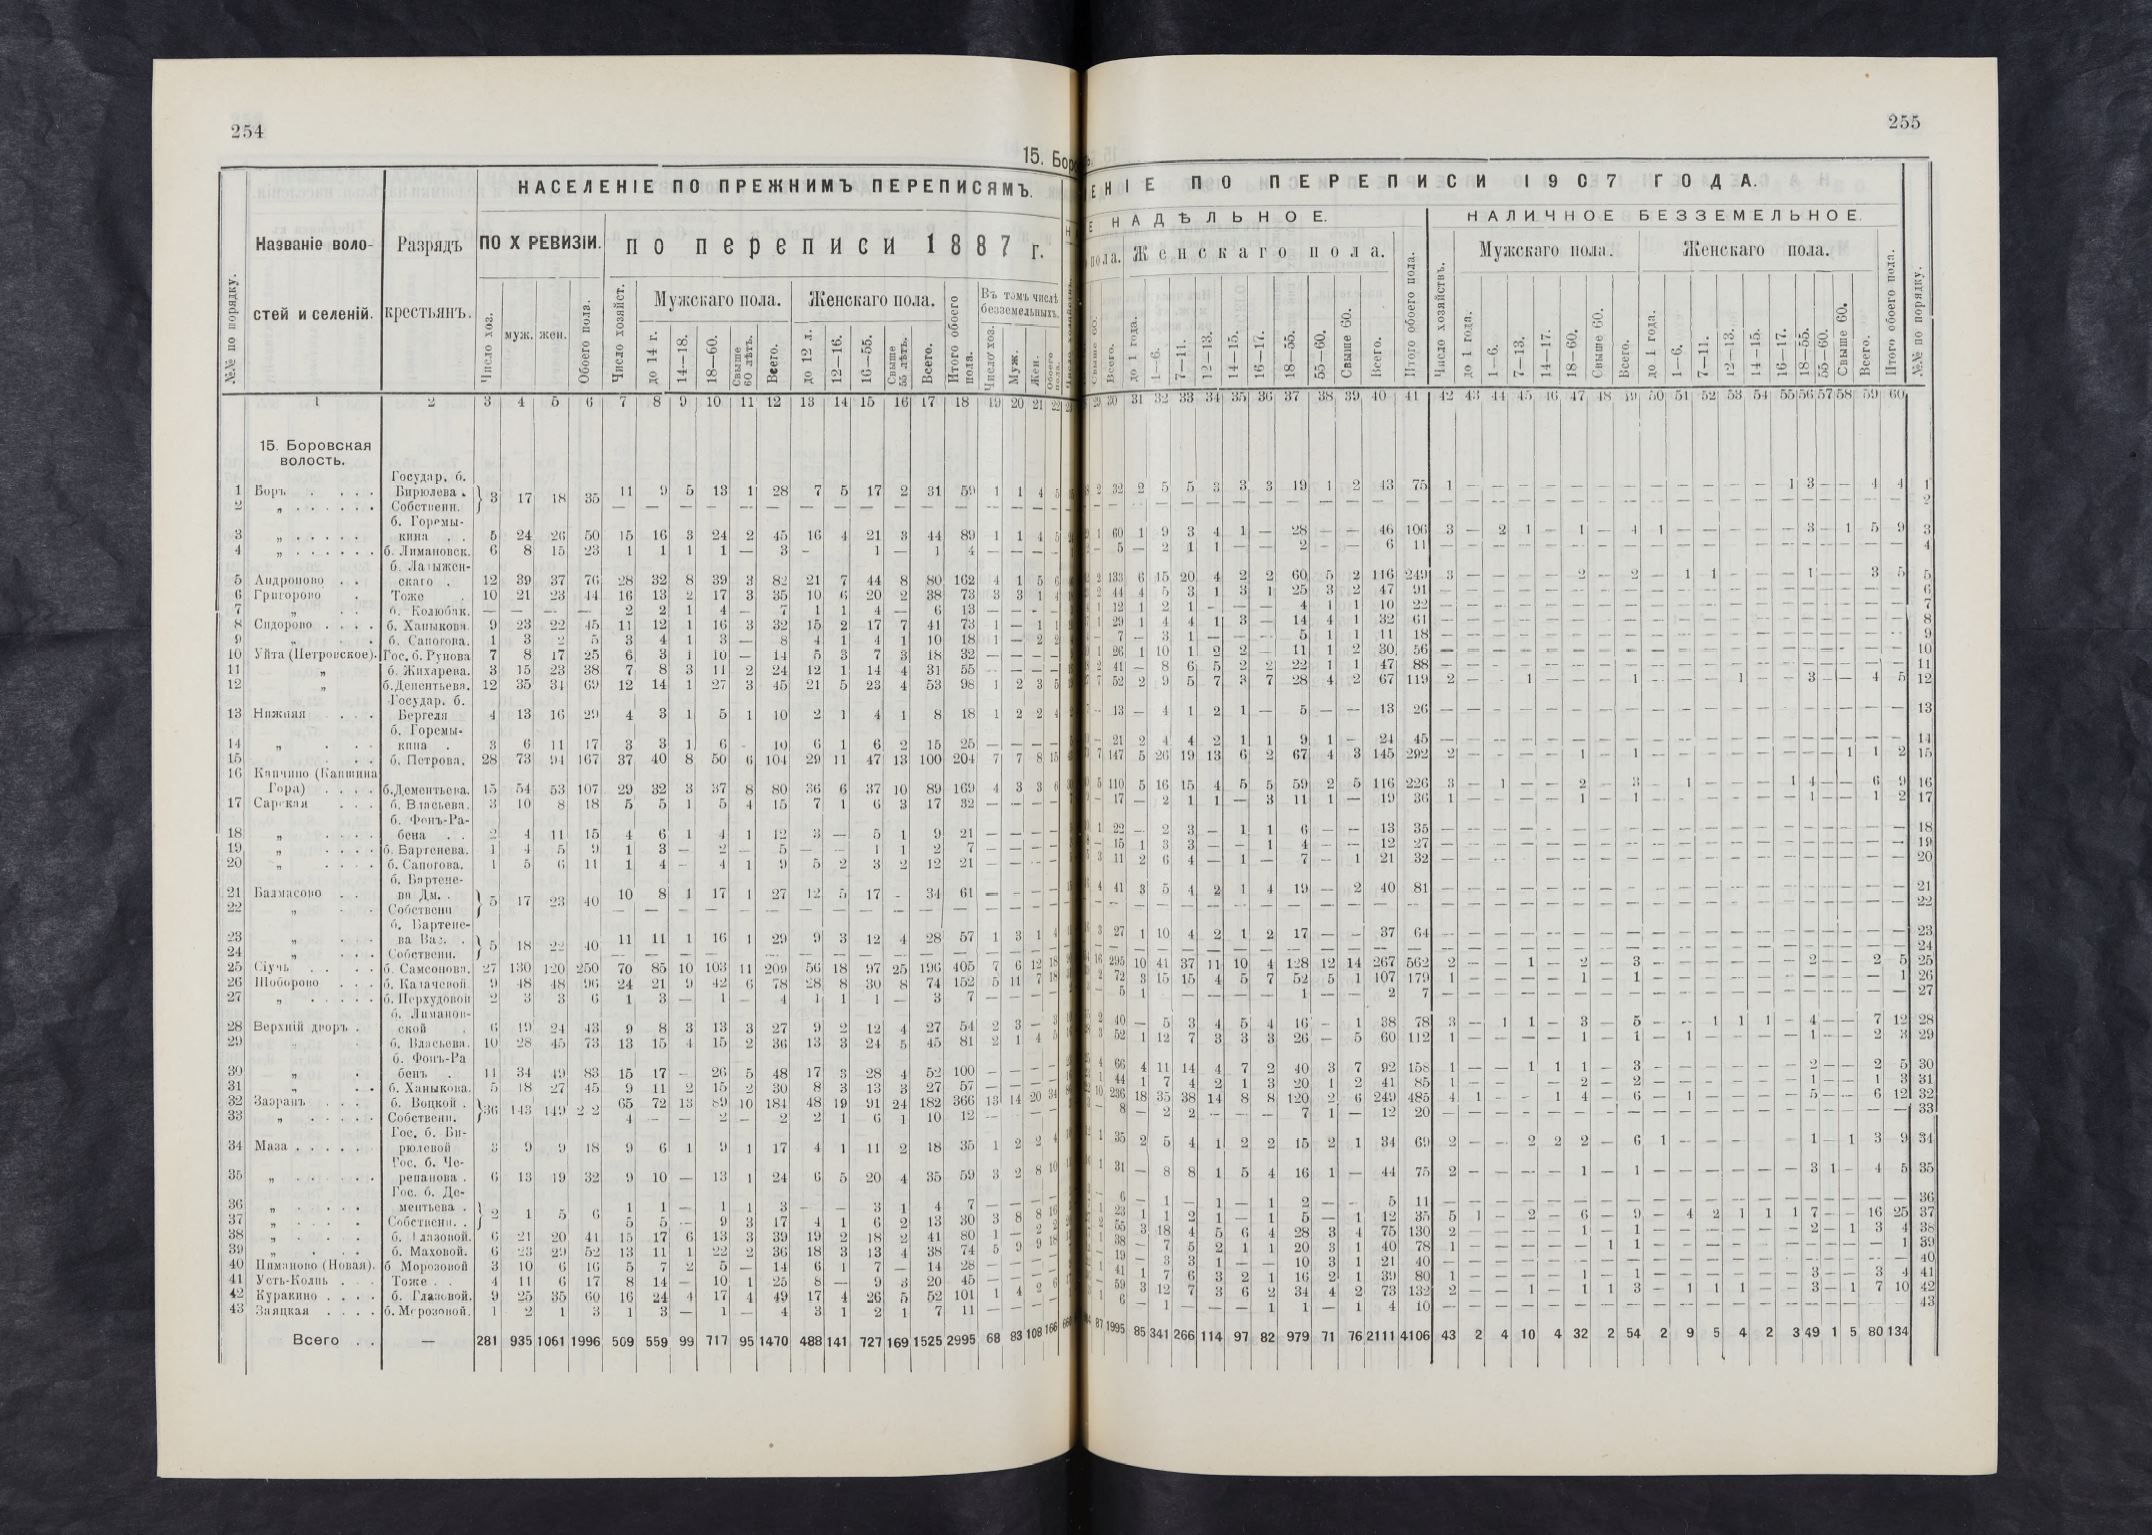 254
255
15. Боро
НАСЕЛЕНІЕ ПО ПРЕЖНИМЪ ПЕРЕПИСЯМЪ.
ЕНІЕ ПО ПЕРЕПИСИ 1907 ГОДА.
Е НАДѢЛЬНОЕ.
НАЛИЧНОЕ БЕЗЗЕМЕЛЬНОЕ.
№№ по порядку.
Названіе волостей и селеній.
Разрядъ крестьянъ.
ПО X РЕВИЗІИ.
по переписи 1887 г.
Число хоз.
муж.
жен.
Обоего пола.
Число хозяйст.
Мужскаго пола.
до 14 г.
14—18.
18—60.
Свыше 60 лѣтъ.
Всего.
Женскаго пола.
до 12 л.
12—16.
16—55.
Свыше 55 лѣтъ.
Всего.
Итого обоего пола.
Въ томъ числѣ безземельныхъ.
Число хоз.
Муж.
Жен.
Обоего пола.
пола.
Свыше 60.
Всего.
Женскаго пола.
до 1 года.
1—6.
7—11.
12—13.
14—15.
16—17.
18—55.
55—60.
Свыше 60.
Всего.
Итого обоего пола.
Число хозяйствъ.
Мужскаго пола.
до 1 года.
1—6.
7—13.
14—17.
18—60.
Свыше 60.
Всего.
Женскаго пола.
до 1 года.
1—6.
7—11.
12—13.
14—15.
16—17.
18—55.
55—60.
Свыше 60.
Всего.
Итого обоего пола.
№№ по порядку.
1 2 3 4 5 6 7 8 9 10 11 12 13 14 15 16 17 18 19 20 21 22
29 30 31 32 33 34 35 36 37 38 39 40 41 42 43 44 45 46 47 48 49 50 51 52 53 54 55 56 57 58 59 60
15. Боровская
волость.
Государ. б.
1 Боръ . . . . Бирюлева . 3 17 18 35 11 9 5 13 1 28 7 5 17 2 31 59 1 1 4 5
2 „ . . . . . . Собственн. — — — — — — — — — — — —
б. Горемы-
3 „ . . . . . кина . . 5 24 26 50 15 16 3 24 2 45 16 4 21 3 44 89 1 1 4 5
4 „ . . . . . . б. Лимановск. 6 8 15 23 1 1 1 1 — 3 - 1 — 1 4 — — — —
б. Ладыжен-
5 Андроново . . скаго . 12 39 37 76 28 32 8 39 3 82 21 7 44 8 80 162 4 1 5 6
6 Григорово . Тоже . 10 21 23 44 16 13 2 17 3 35 10 6 20 2 38 73 3 3 1 4
7 „ . . б. Колюбак. — — — — 2 2 1 4 — 7 1 1 4 — 6 13 — — — —
8 Сидорово . . . . б. Ханыкова. 9 23 22 45 11 12 1 16 3 32 15 2 17 7 41 73 1 — 1 1
9 „ . б. Сапогова. 1 3 2 5 3 4 1 3 — 8 4 1 4 1 10 18 1 — 2 2
10 Уйта (Петровское). Гос. б. Рунова 7 8 17 25 6 3 1 10 — 14 5 3 7 3 18 32 — — — —
11 „ б. Жихарева. 3 15 23 38 7 8 3 11 2 24 12 1 14 4 31 55 — — — —
12 „ б. Дементьева. 12 35 34 69 12 14 1 27 3 45 21 5 23 4 53 98 1 2 3 5
Государ. б.
13 Нижняя . . . Бергеля 4 13 16 29 4 3 1 5 1 10 2 1 4 1 8 18 1 2 2 4
б. Горемы-
14 „ . . . кина . 3 6 11 17 3 3 1 6 - 10 6 1 6 2 15 25 — — — —
15 . . . б. Петрова. 28 73 94 167 37 40 8 50 6 104 29 11 47 13 100 204 7 7 8 15
16 Капчино (Капшина
Гора) . . . . б. Дементьева. 15 54 53 107 29 32 3 37 8 80 36 6 37 10 89 169 4 3 3 6
17 Сарская . . . б. Власьева. 3 10 8 18 5 5 1 5 4 15 7 1 6 3 17 32 — — — —
б. Фонъ-Ра-
18 „ . . . . бена . . 2 4 11 15 4 6 1 4 1 12 3 — 5 1 9 21 — — — —
19 „ . . . . б. Вартенева. 1 4 5 9 1 3 — 2 — 5 — — 1 1 2 7 — — — —
20 „ . . . . б. Сапогова. 1 5 6 11 1 4 — 4 1 9 5 2 3 2 12 21 — — — —
б. Вартене-
21 Балмасово . . ва Дм. . 5 17 23 40 10 8 1 17 1 27 12 5 17 - 34 61 — — — —
22 „ . . Собственн — — — — — — — — — — — —
б. Вартене-
23 „ . . ва Вас. . 5 18 22 40 11 11 1 16 1 29 9 3 12 4 28 57 1 3 1 4
24 „ . . Собственн. — — — — — — — — — — — —
25 Сіучь . . . . б. Самсонова. 27 130 120 250 70 85 10 103 11 209 56 18 97 25 196 405 7 6 12 18
26 Шоборово . . . б. Калачевой 9 48 48 96 24 21 9 42 6 78 28 8 30 8 74 152 5 11 7 18
27 „ . . . . . б. Перхудовой 2 3 3 6 1 3 — 1 — 4 1 1 1 — 3 7 — — — —
б. Лиманов-
28 Верхній дворъ . ской . 6 19 24 43 9 8 3 13 3 27 9 2 12 4 27 54 2 3 — 3
29 „ . б. Власьева. 10 28 45 73 13 15 4 15 2 36 13 3 24 5 45 81 2 1 4 5
б. Фонъ-Ра
30 „ . бенъ . 11 34 49 83 15 17 — 26 5 48 17 3 28 4 52 100 — — — —
31 „ . . б. Ханыкова. 5 18 27 45 9 11 2 15 2 30 8 3 13 3 27 57 — — — —
32 Заэранъ . . . б. Воцкой . 36 143 149 2 2 65 72 13 89 10 184 48 19 91 24 182 366 13 14 20 34
33 „ . . . . . Собственн. 4 — — 2 — 2 2 1 6 1 10 12 — — — —
Гос. б. Би-
34 Маза . . . . . . рюлевой 3 9 9 18 9 6 1 9 1 17 4 1 11 2 18 35 1 2 2 4
Гос. б. Че-
35 „ . . . . . . репанова . 6 13 19 32 9 10 — 13 1 24 6 5 20 4 35 59 3 2 8 10
Гос. б. Де-
36 „ . . . . ментьева . 2 1 5 6 1 1 — 1 1 3 — — 3 1 4 7 — — — —
37 „ . . . . Собственн. . 5 5 — 9 3 17 4 1 6 2 13 30 3 8 8 16
38 „ . . . . б. Глазовой. 6 21 20 41 15 17 6 13 3 39 19 2 18 2 41 80 1 — 2 2
39 „ . . . б. Маховой. 6 23 29 52 13 11 1 22 2 36 18 3 13 4 38 74 5 9 9 18
40 Пиманово (Новая). б Морозовой 3 10 6 16 5 7 2 5 — 14 6 1 7 — 14 28 — — — —
41 Усть-Колпь . . . Тоже . . 4 11 6 17 8 14 — 10 1 25 8 — 9 3 20 45 — — — —
42 Куракино . . . . б. Глазовой. 9 25 35 60 16 24 4 17 4 49 17 4 26 5 52 101 1 4 2 6
43 Заяцкая . . . . б. Морозовой. 1 2 1 3 1 3 — 1 — 4 3 1 2 1 7 11 — — — —
Всего . . — 281 935 1061 1996 509 559 99 717 95 1470 488 141 727 169 1525 2995 68 83 108 166
2 32 2 5 5 3 3 3 19 1 2 43 75 1 — — — — — — — — — — — — 1 3 — — 4 4 1
— — — — — — — — — — — — — 2
1 60 1 9 3 4 1 — 28 — — 46 106 3 — 2 1 — 1 — 4 1 — — — — — 3 — 1 5 9 3
— 5 — 2 1 1 — — 2 — — 6 11 4
2 133 6 15 20 4 2 2 60 5 2 116 249 3 — — — — 2 — 2 — 1 1 — — — 1 — — 3 5 5
2 44 4 5 3 1 3 1 25 3 2 47 91 6
1 12 1 2 1 — — — 4 1 1 10 22 7
1 29 1 4 4 1 3 — 14 4 1 32 61 8
— 7 — 3 1 — — — 5 1 1 11 18 9
1 26 1 10 1 2 2 — 11 1 2 30 56 10
2 41 — 8 6 5 2 2 22 1 1 47 88 11
7 52 2 9 5 7 3 7 28 4 2 67 119 2 — — 1 — — — 1 — — — 1 — — 3 — — 4 5 12
— 13 — 4 1 2 1 — 5 — — 13 26 13
— 21 2 4 4 2 1 1 9 1 — 24 45 14
7 147 5 26 19 13 6 2 67 4 3 145 292 2 — — — — 1 — 1 — — — — — — — — 1 1 2 15
5 110 5 16 15 4 5 5 59 2 5 116 226 3 — 1 — — 2 — 3 — 1 — — — 1 4 — — 6 9 16
— 17 — 2 1 1 — 3 11 1 — 19 36 1 — — — — 1 — 1 — — — — — — 1 — — 1 2 17
1 22 — 2 3 — 1 1 6 — — 13 35 18
— 15 1 3 3 — — 1 4 — — 12 27 19
3 11 2 6 4 — 1 — 7 — 1 21 32 20
4 41 3 5 4 2 1 4 19 — 2 40 81 21
— — — — — — — — — — — — — 22
3 27 1 10 4 2 1 2 17 — — 37 64 23
— — — — — — — — — — — — — 24
16 295 10 41 37 11 10 4 128 12 14 267 562 2 — — 1 — 2 — 3 — — — — — — 2 — — 2 5 25
2 72 3 15 15 4 5 7 52 5 1 107 179 1 — — — — 1 — 1 — — — — — — — — — — 1 26
5 1 — — — — — 1 — — 2 7 27
2 40 — 5 3 4 5 4 16 — 1 38 78 3 — 1 1 — 3 — 5 — — 1 1 1 — 4 — — 7 12 28
3 52 1 12 7 3 3 3 26 — 5 60 112 1 — — — — 1 — 1 — 1 — — — — 1 — — 2 3 29
4 66 4 11 14 4 7 2 40 3 7 92 158 1 — — 1 1 1 — 3 — — — — — — 2 — — 2 5 30
1 44 1 7 4 2 1 3 20 1 2 41 85 1 — — — — 2 — 2 — — — — — — 1 — — 1 3 31
10 236 18 35 38 14 8 8 120 2 6 249 485 4 1 — — 1 4 — 6 — 1 — — — — 5 — — 6 12 32
8 — 2 2 — — — 7 1 — 12 20 33
1 35 2 5 4 1 2 2 15 2 1 34 69 2 — — 2 2 2 — 6 1 — — — — — 1 — 1 3 9 34
1 31 — 8 8 1 5 4 16 1 — 44 75 2 — — — — 1 — 1 — — — — — — 3 1 — 4 5 35
6 — 1 — 1 — 1 2 — — 5 11 36
1 23 1 1 2 1 — 1 5 — 1 12 35 5 1 — 2 — 6 — 9 — 4 2 1 1 1 7 — — 16 25 37
2 55 3 18 4 5 6 4 28 3 4 75 130 2 — — — — 1 — 1 — — — — — — 2 — 1 3 4 38
38 — 7 5 2 1 1 20 3 1 40 78 1 — — — — — 1 1 — — — — — — — — — — 1 39
19 — 3 3 1 — — 10 3 1 21 40 40
41 1 7 6 3 2 1 16 2 1 39 80 1 — — — — 1 — 1 — — — — — — 3 — — 3 4 41
59 3 12 7 3 6 2 34 4 2 73 132 2 — — 1 — 1 1 3 — 1 1 1 — — 3 — 1 7 10 42
6 — 1 — — 1 1 — 1 4 10 43
87 1995 85 341 266 114 97 82 979 71 76 2111 4106 43 2 4 10 4 32 2 54 2 9 5 4 2 3 49 1 5 80 134